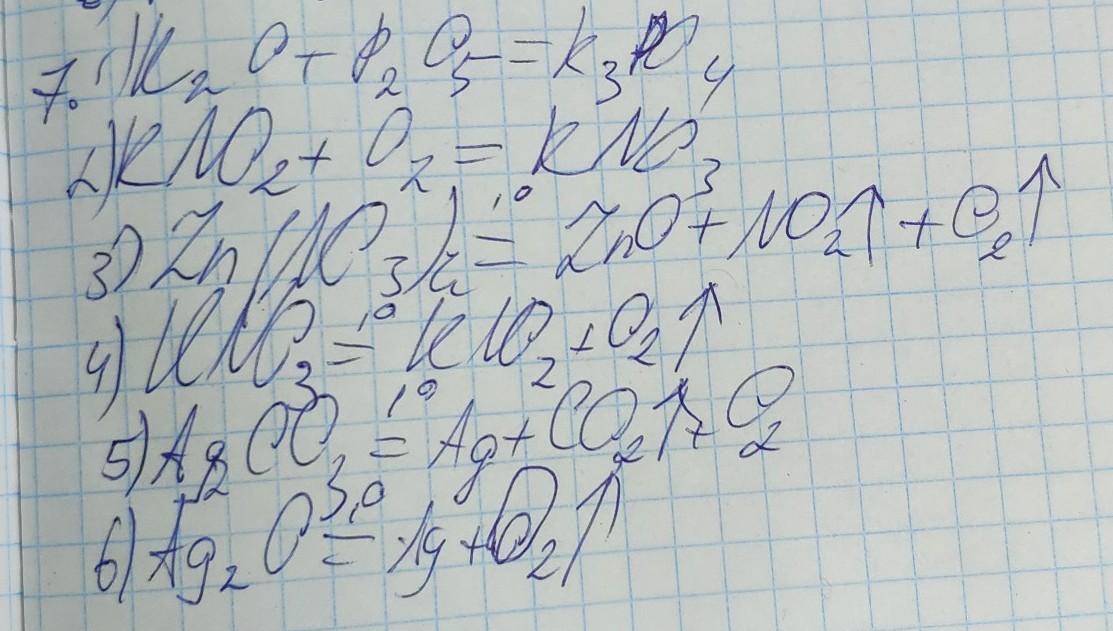 7. 1) K₂O + P₂O₅ = K₃PO₄
2) KNO₂ + O₂ = KNO₃
3) Zn(NO₃)₂ =t° ZnO + NO₂↑ + O₂↑
4) KNO₃ =t° KNO₂ + O₂↑
5) Ag₂CO₃ =t° Ag + CO₂↑ + O₂
6) Ag₂O =t° Ag + O₂↑